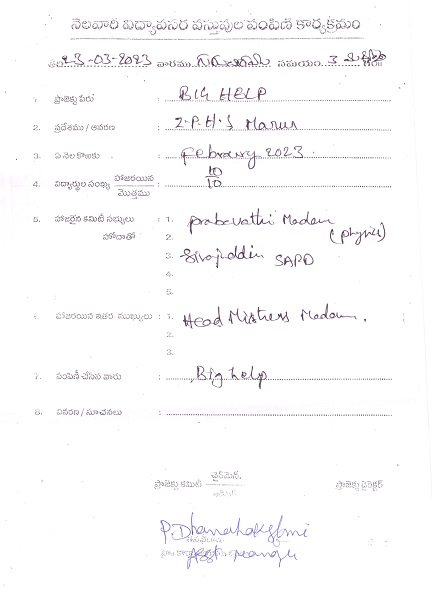 నెలవారి విద్యావసర వస్తువుల పంపిణి కార్యక్రమం
తేది 23-03-2023 వారము గురువారము సమయం 3
1. ప్రాజెక్టు పేరు : BIG HELP
2. ప్రదేశము / ఆవరణ : Z.P.H.S Marur
3. ఏ నెల కొఱకు : February 2023
4. విద్యార్థుల సంఖ్య హాజరయిన / మొత్తము : 10/10
5. హాజరైన కమిటీ సభ్యులు : 1. prabavathi Madam
హోదాతో 2. (physics)
3. Sirajuddin SAPD
4.
5.
6. హాజరయిన ఇతర ముఖ్యులు : 1. Head Mistress Madam.
2.
3.
7. పంపిణీ చేసిన వారు : Big help
8. వివరణ / సూచనలు :
ఛైర్‌మెన్,
ప్రాజెక్టు కమిటీ
ప్రాజెక్టు డైరెక్టర్
P. Dhanalakshmi